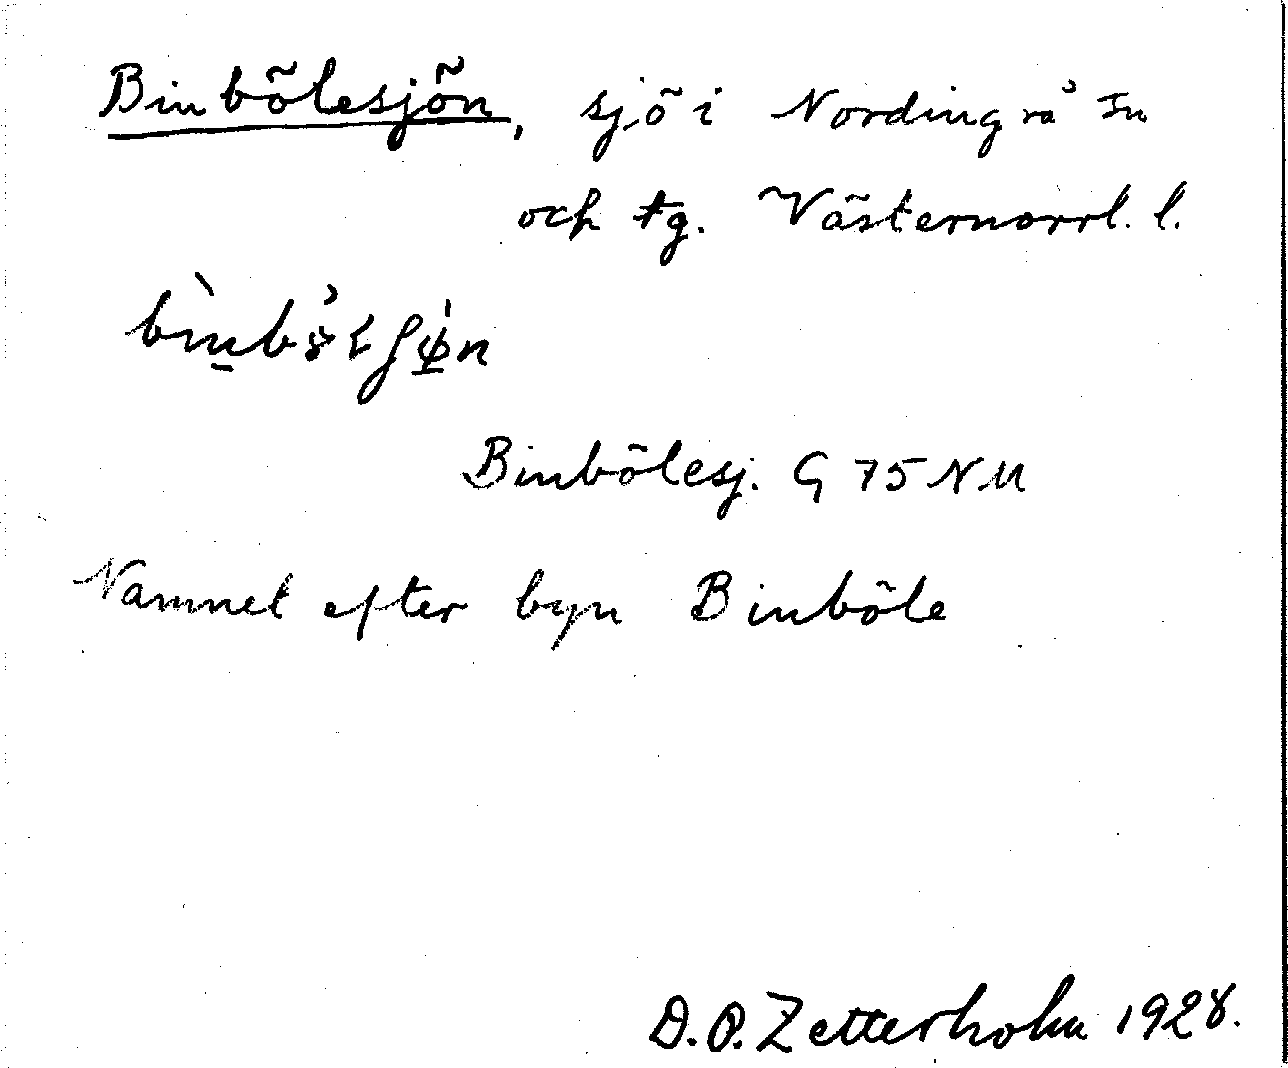 Binbölesjön, sjö i Nordingrå sn
och tg. Västernorrl. l.
Binbölesj. G 75 NM
Namnet efter byn Binböle
D.O. Zetterholm 1928.